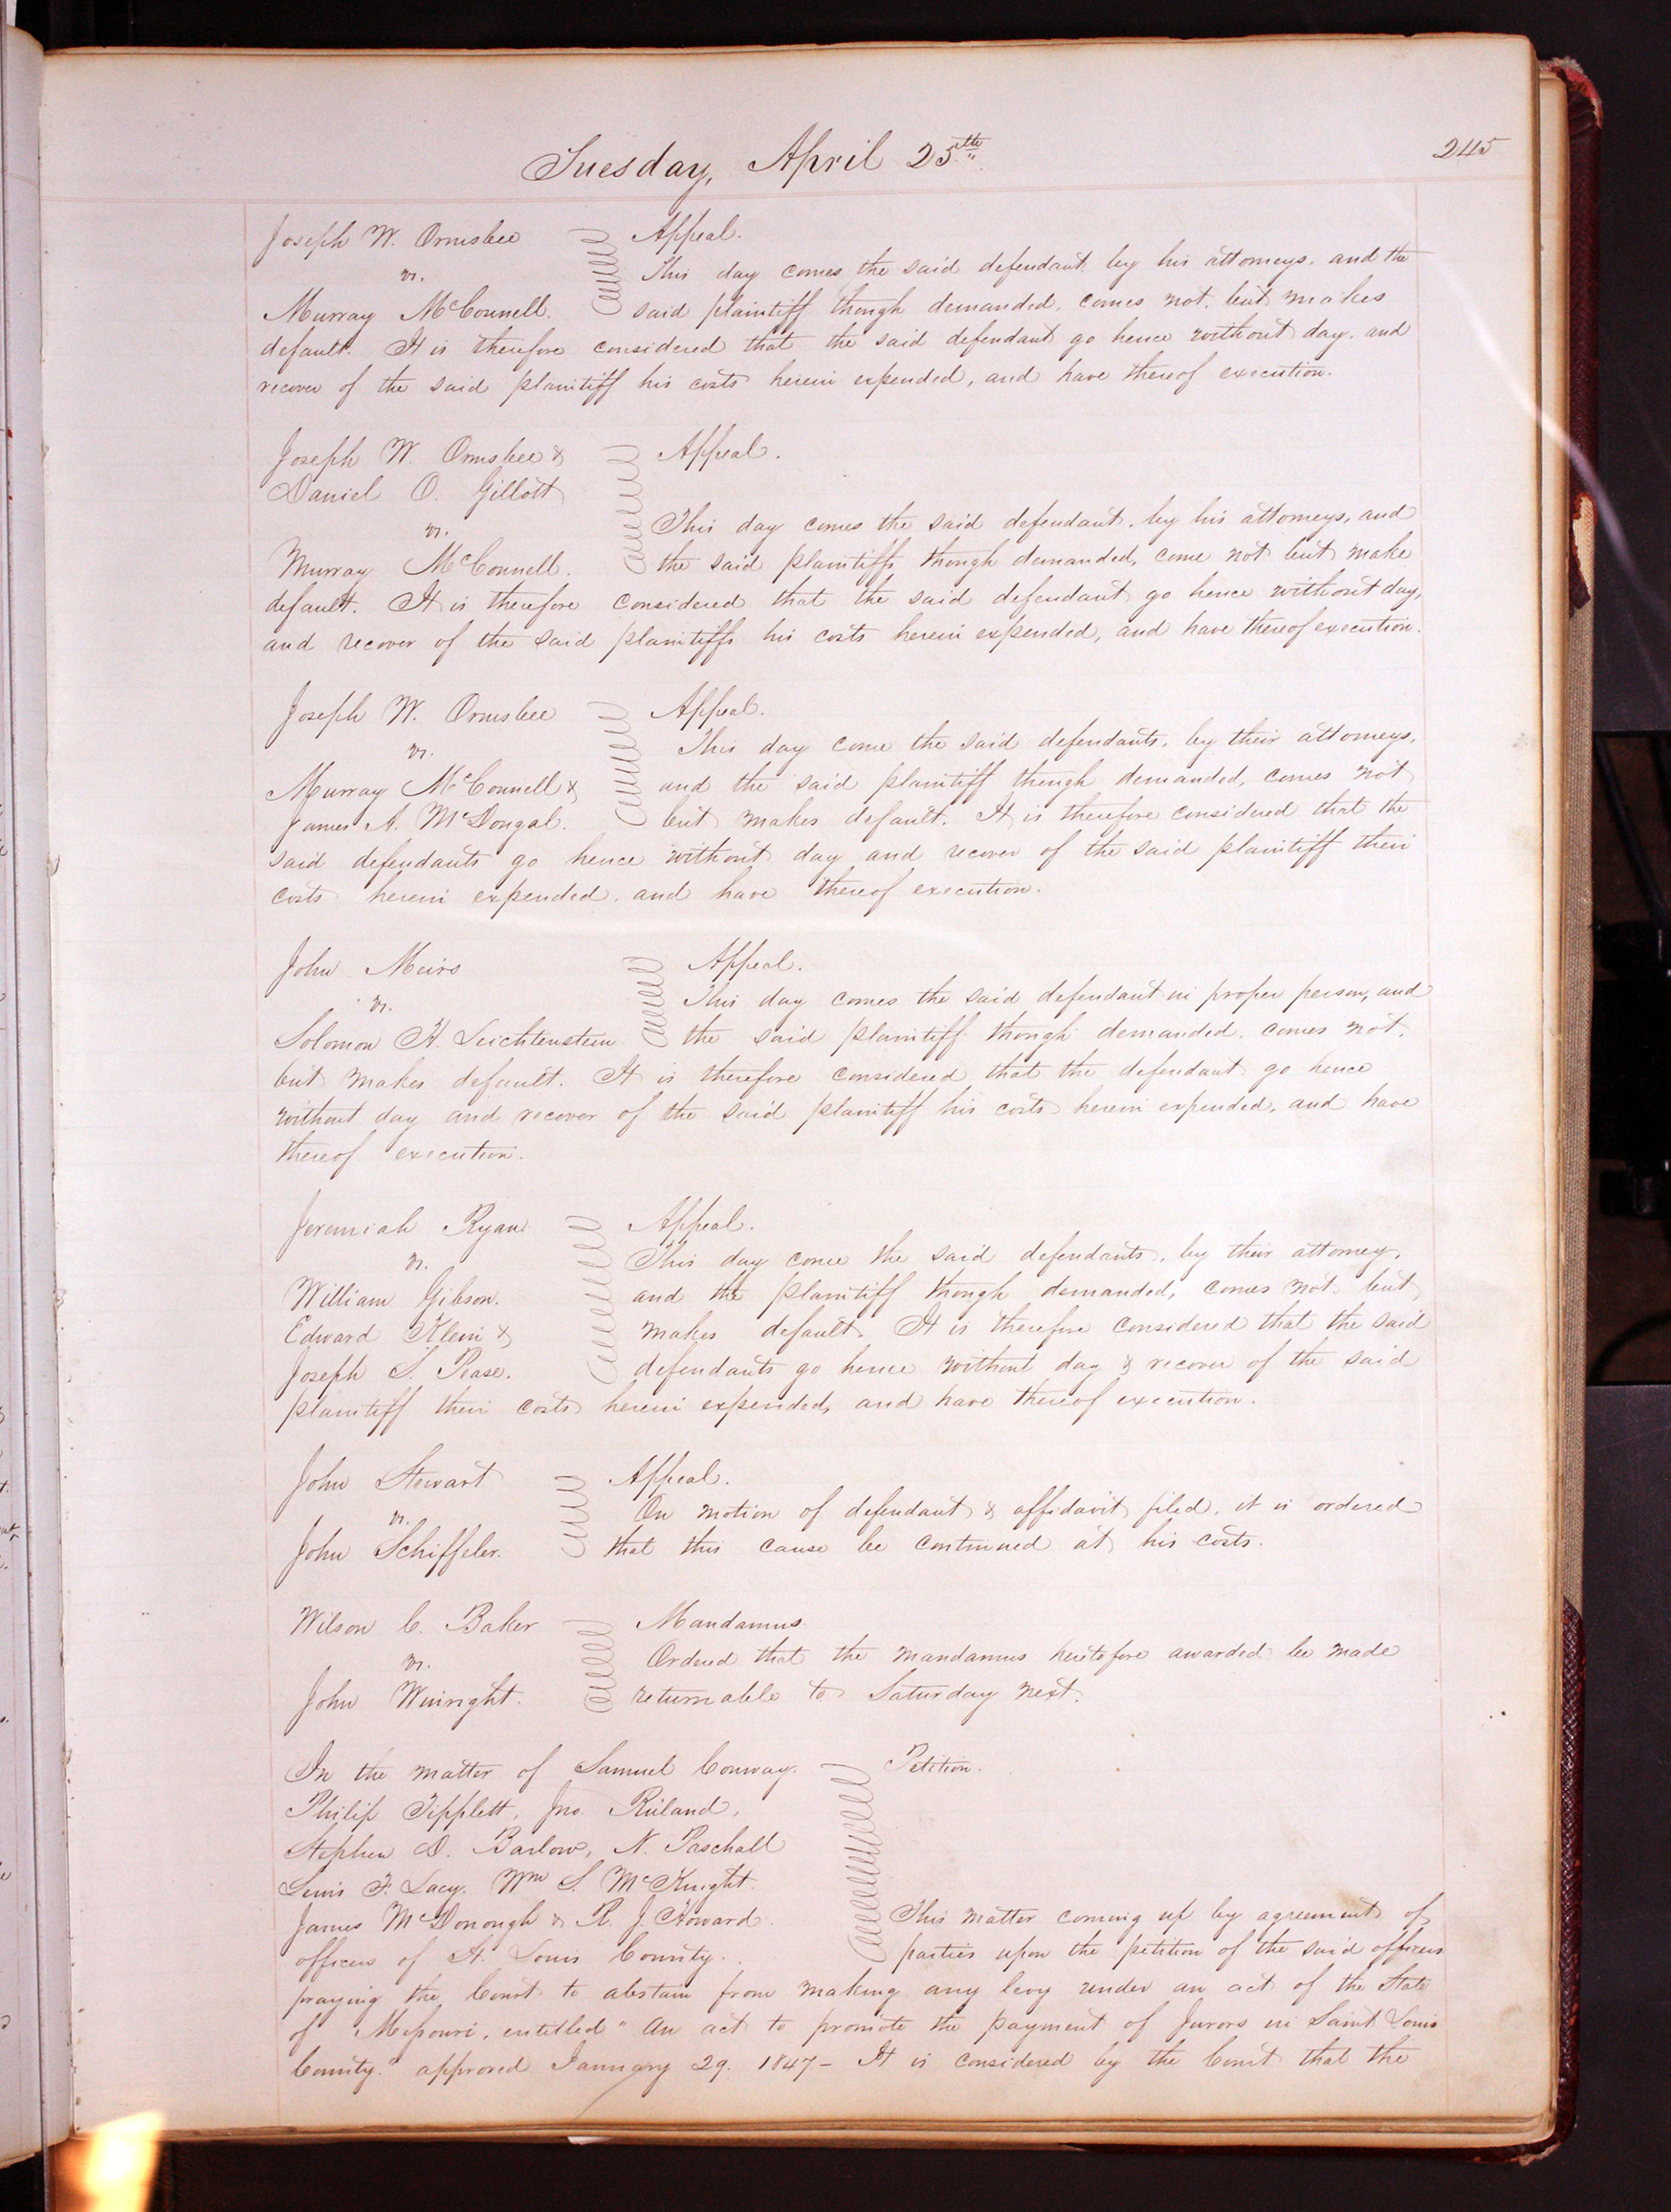 245
Tuesday, April 25th
Joseph W. Ormsbee
vs.
Murray McConnell.
Appeal.
This day comes the said defendant by his attorneys, and the
said plaintiff though demanded, comes not, but makes
default. It is therefore considered that the said defendant go hence without day, and
recover of the said plaintiff his costs herein expended, and have thereof execution.
Joseph W. Ormsbee &
Daniel O. Gillott
vs.
Murray McConnell.
Appeal.
This day comes the said defendant, by his attorneys, and
the said plaintiffs though demanded, come not but make
default. It is therefore considered that the said defendant go hence without day,
and recover of the said plaintiffs his costs herein expended, and have thereof execution.
Joseph W. Ormsbee
vs.
Murray McConnell &
James A. McDougal.
Appeal.
This day come the said defendants, by their attorneys,
and the said plaintiff though demanded, comes not
but makes default. It is therefore considered that the
said defendants go hence without day and recover of the said plaintiff their
costs herein expended, and have thereof execution.
John Meiro
vs.
Solomon H. Leichtenstein
Appeal.
This day comes the said defendant in proper person, and
the said plaintiff though demanded, comes not,
but makes default. It is therefore considered that the defendant go hence
without day and recover of the said plaintiff his costs herein expended, and have
thereof execution.
Jeremiah Ryan
vs.
William Gibson.
Edward Klein &
Joseph S. Pease.
Appeal.
This day come the said defendants, by their attorney,
and the plaintiff though demanded, comes not but
makes default. It is therefore considered that the said
defendants go hence without day & recover of the said
plaintiff their costs herein expended, and have thereof execution.
John Stewart
vs.
John Schiffeler.
Appeal.
On motion of defendant & affidavit filed, it is ordered
that this cause be continued at his costs.
Wilson C. Baker
vs.
John Winright.
Mandamus.
Ordered that the mandamus heretofore awarded be made
returnable to Saturday next.
In the matter of Samuel Conway.
Philip Tipplett, Jno. Ruland,
Stephen D. Barlow, N. Paschall
Lewis F. Lacy. Wm S. McKnight.
James McDonough & R. J. Howard.
officers of St. Louis County.
Petition.
This matter coming up by agreement of
parties upon the petition of the said officers
praying the Court to abstain from making any levy under an act of the State
of Missouri, entitled "An act to promote the payment of Jurors in Saint Louis
County." approved January 29. 1847 – It is considered by the Court that the